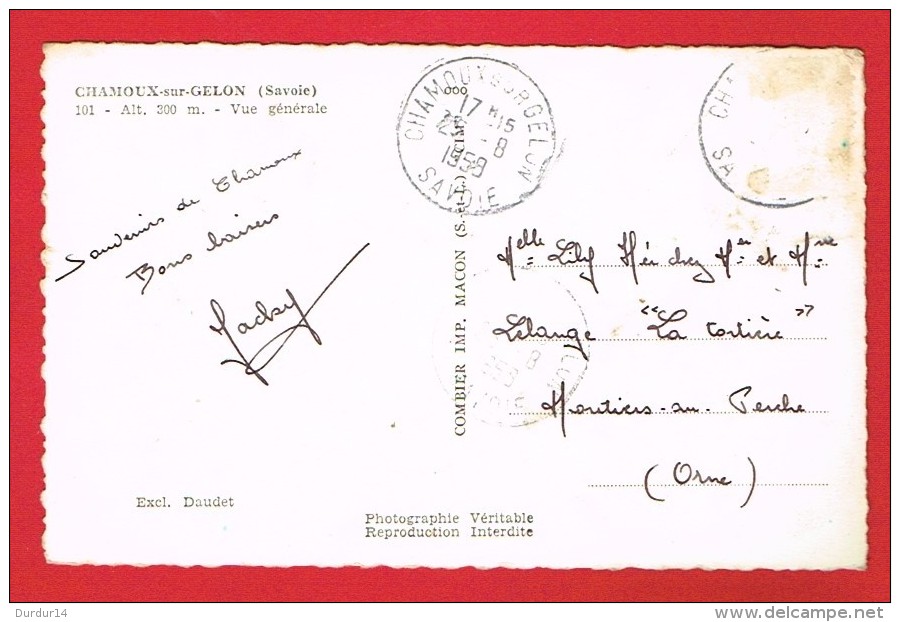 CHAMOUX-sur-GELON (Savoie)
101 - Alt. 300 m. - Vue générale
Souvenirs de Chamoux
Bons baisers
Jacky
Excl. Daudet
CHAMOUX SUR GELON
17 H 15
25 - 8
1959
SAVOIE
CH
SA
COMBIER IMP. MACON (S.-et-L.) CIM
Melle Lily chez Mr et Mme
Lelange "La Tortière"
Moutiers-au-Perche
(Orne)
Photographie Véritable
Reproduction Interdite
Durdur14
www.delcampe.net